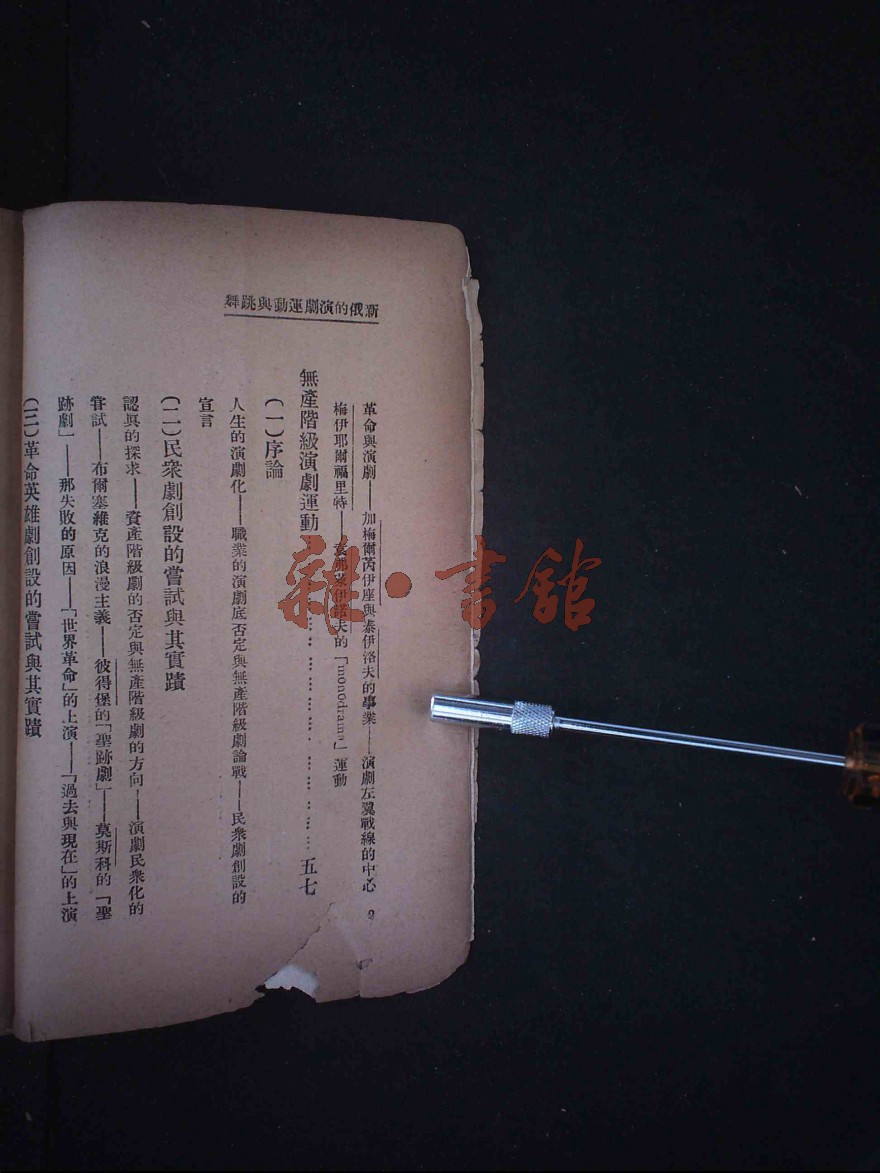 新俄的演劇運動與跳舞
革命與演劇——加梅爾芮伊座與泰伊洛夫的事業——演劇左翼戰線的中心
梅伊耶爾福里特——的「monodrama」運動
無產階級演劇運動……五七
(一)序論
人生的演劇化——職業的演劇底否定與無產階級劇論戰——民衆劇創設的
宣言
(二)民衆劇創設的嘗試與其實蹟
認眞的探求——資產階級劇的否定與無產階級劇的方向——演劇民衆化的
嘗試——布爾塞維克的浪漫主義——彼得堡的「聖跡劇」——莫斯科的「聖
跡劇」——那失敗的原因——「世界革命」的上演——「過去與現在」的上演
(三)革命英雄劇創設的嘗試與其實蹟
2
雜·書館